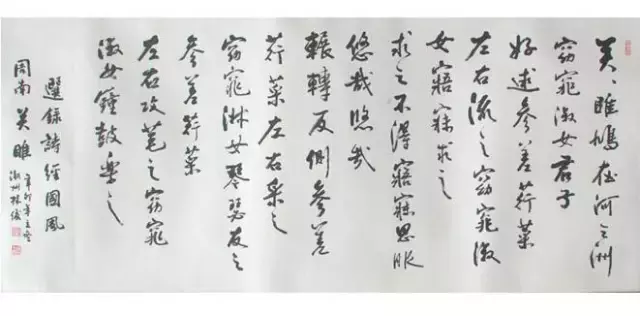 关〻雎鳩在河之洲
窈窕淑女君子
好逑参差荇菜
左右流之窈窕淑
女寤寐求之
求之不得寤寐思服
悠哉悠哉
輾轉反側参差
荇菜左右采之
窈窕淑女琴瑟友之
参差荇菜
左右芼之窈窕
淑女鍾鼓樂之
選錄詩經國風
周南关雎
辛卯年
潮州林